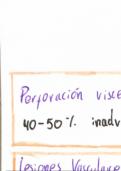 Perforación visce
40-50% inadv
Lesiones Vasculare